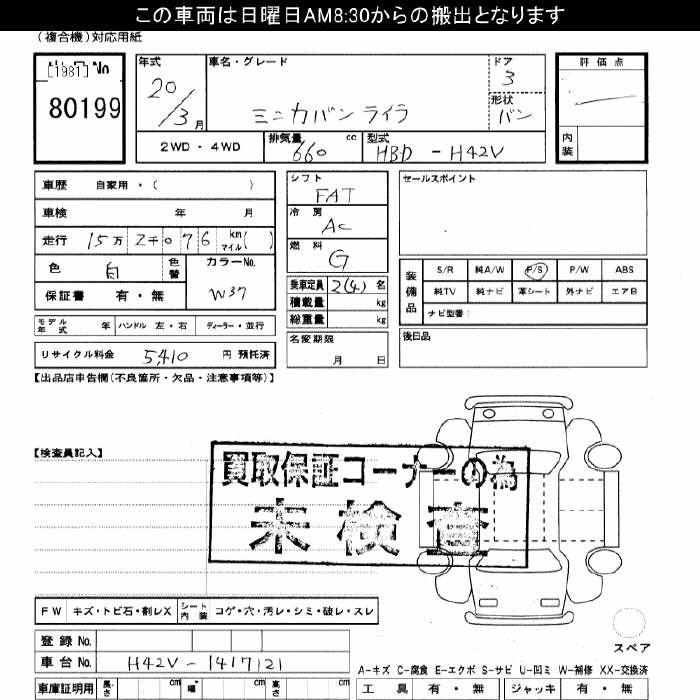 この車両は日曜日AM8:30からの搬出となります
(複合機)対応用紙
[1981] No
80199
年式
20/3月
車名・グレード
ミニカバン ライラ
ドア
3
形状
バン
評価点
内装
2WD・4WD
排気量
660 cc
型式
HBD - H42V
車歴 自家用・( )
車検 年 月
走行 15万 2千 0 7 6 km マイル( )
色 白 色替
カラーNo.
W37
保証書 有・無
モデル年式 年 ハンドル 左・右 ディーラー・並行
リサイクル料金 5,410 円 預託済
シフト
FAT
冷房
AC
燃料
G
乗車定員 2(4) 名
積載量 kg
総重量 kg
名変期限
月 日
セールスポイント
装備品
S/R 純A/W P/S P/W ABS
純TV 純ナビ 革シート 外ナビ エアB
ナビ型番:
後日品
【出品店申告欄(不良箇所・欠品・注意事項等)】
【検査員記入】
買取保証コーナーの為
未検査
FW キズ・トビ石・割レX シート内装 コゲ・穴・汚レ・シミ・破レ・スレ
登録 No.
車台 No. H42V-1417121
車庫証明用 長さ cm 幅 cm 高さ cm
スペア
A-キズ C-腐食 E-エクボ S-サビ U-凹ミ W-補修 XX-交換済
工具 有・無 ジャッキ 有・無